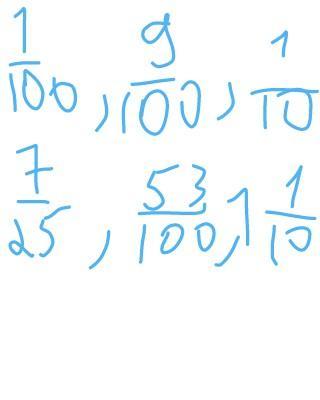 1/100, 9/100, 1/10
7/25, 53/100, 1 1/10